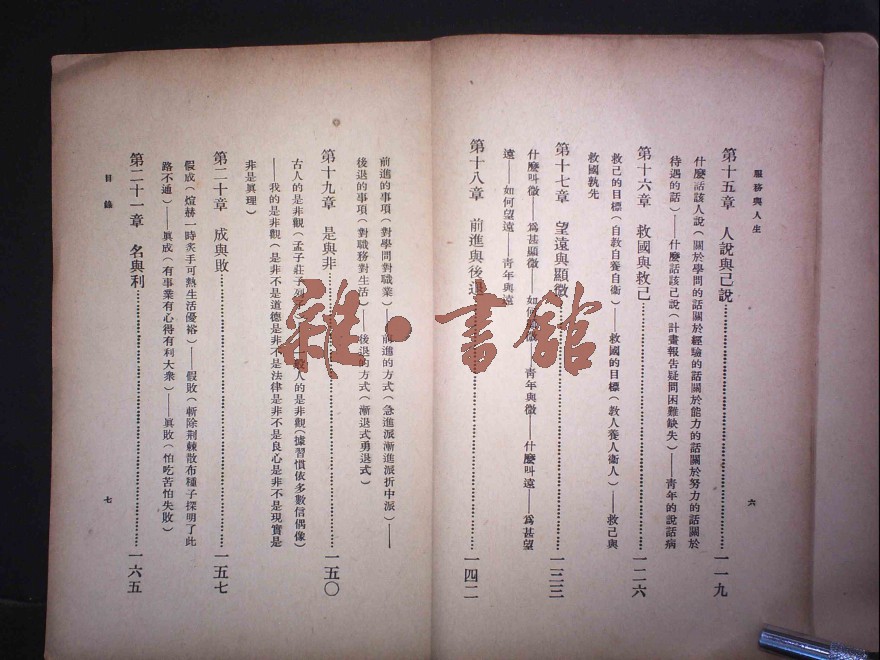 服務與人生
六
第十五章 人說與己說……一一九
什麼話該人說（關於學問的話關於經驗的話關於能力的話關於努力的話關於
待遇的話）——什麼話該己說（計畫報告疑問困難缺失）——青年的說話病
第十六章 救國與救己……一二六
救己的目標（自教自養自衛）——救國的目標（教人養人衛人）——救己與
救國孰先
第十七章 望遠與顯微……一三三
什麼叫微——爲甚顯微——如何顯微——青年與微——什麼叫遠——爲甚望
遠——如何望遠——青年與遠
第十八章 前進與後退……一四二
前進的事項（對學問對職業）——前進的方式（急進派漸進派折中派）——
後退的事項（對職務對生活）——後退的方式（漸退式勇退式）
第十九章 是與非……一五〇
古人的是非觀（孟子莊子列子）——一般人的是非觀（據習慣依多數信偶像）
——我的是非觀（是非不是道德是非不是法律是非不是良心是非不是現實是
非是眞理）
第二十章 成與敗……一五七
假成（煊赫一時炙手可熱生活優裕）——假敗（斬除荆棘散布種子探明了此
路不通）——眞成（有事業有心得有利大衆）——眞敗（怕吃苦怕失敗）
第二十一章 名與利……一六五
目錄
七
雜·書館